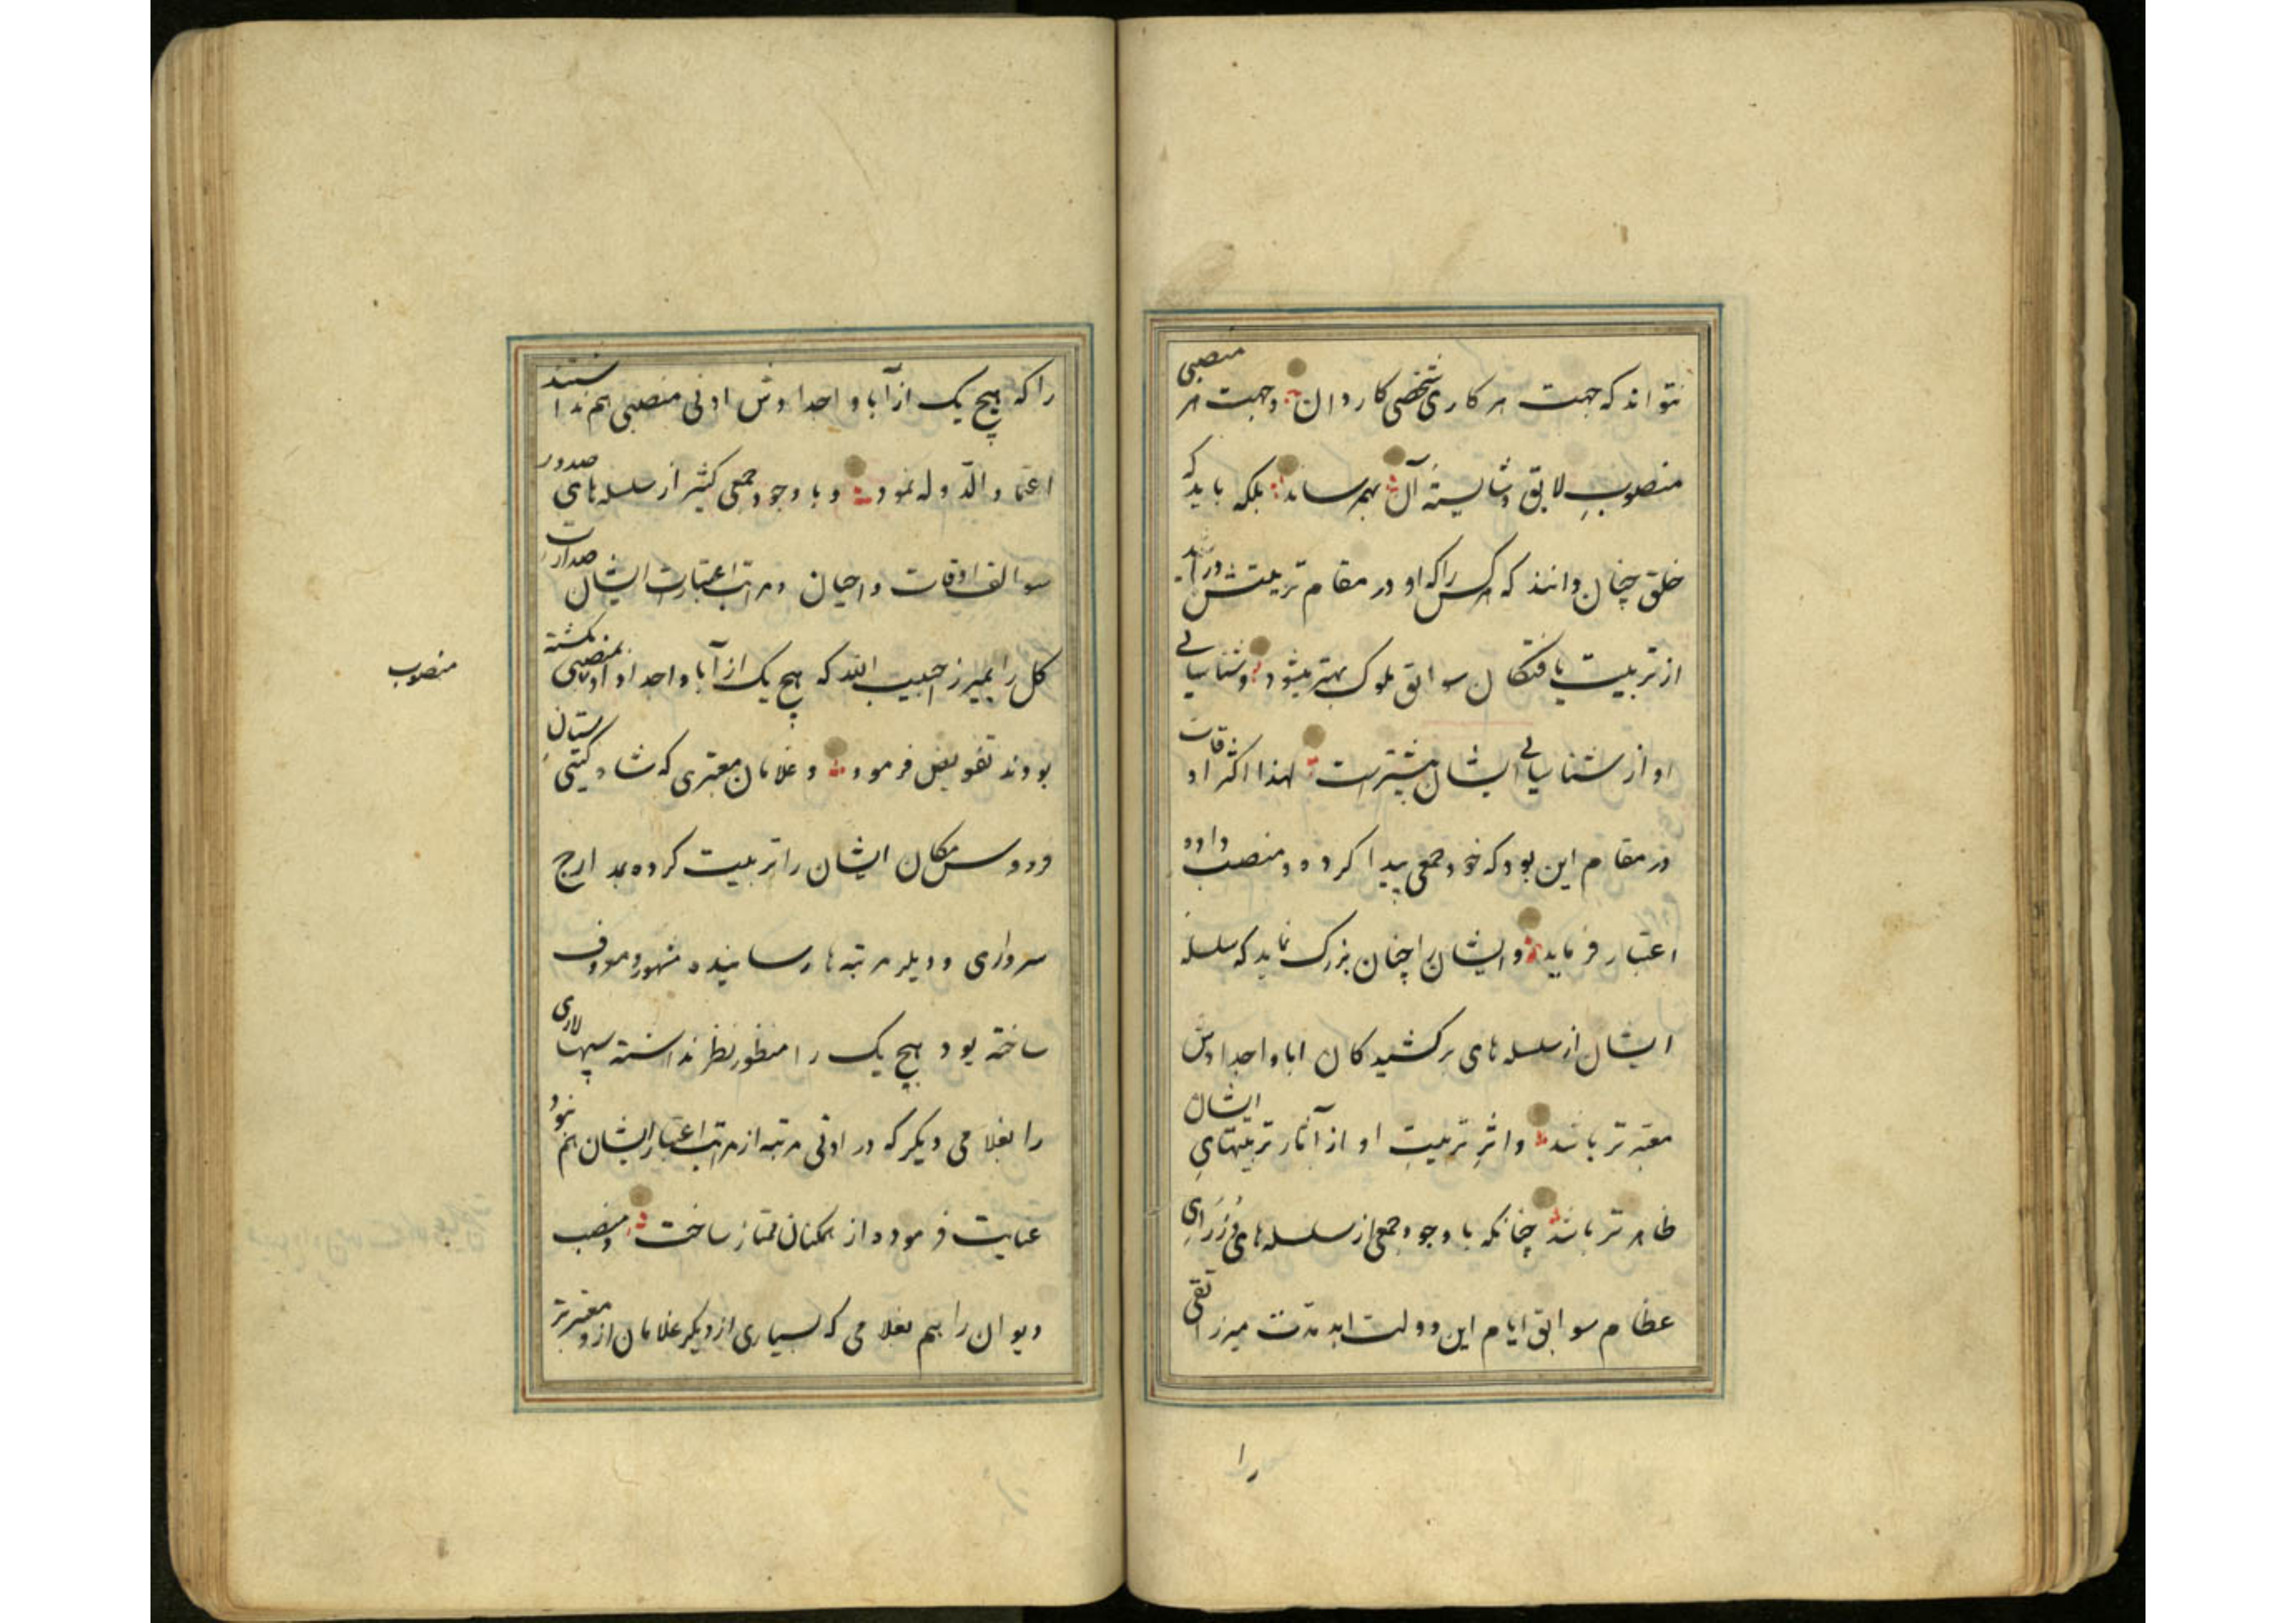 نتواند که جهت هر کاری شخصی کاردان و جهت هر منصبی
منصوبِ لایق و شایستهٔ آن بهم رساند بلکه باید که
خلق چنان دانند که هر کس را که او در مقام تربیتش درآید
از تربیت یافتکان سوابق ملوک بهتر میشود و شناسیائی
او از شناسیائی ایشان بیشترست لهذا اکثر اوقات
در مقام این بود که خود جمعی پیدا کرده و منصب داده
اعتبار فرماید و ایشان را چنان بزرک نماید که سلسله
ایشان از سلسله های برکشیدکان ابا و اجدادش
معتبر تر باشد و اثرِ تربیتِ او از آثار تربیتهایِ ایشان
ظاهر تر باشد چنانکه با وجود جمعی از سلسله های وُزَرایِ
عظام سوابق ایام این دولت ابد مدت میرزا تقی
را
را که هیچ یک از آبا و اجدادش ادنی منصبی هم نداشتند
اعتماد الدوله نمود و با وجود جمعی کثیر از سلسله های صدور
سوالف اوقات و احیان و مراتب اعتبارات ایشان صدارت
کل را بمیرزا حبیب الله که هیچ یک از آبا و اجداد او بادنی منصبی نکشته
بودند تفویض فرمود و غلامان معتبری که شاه کیتی ستان
فردوس مکان ایشان را تربیت کرده بمدارج
سرداری و دیکر مرتبه ها رسانیده مشهور و معروف
ساخته بود هیچ یک را منظور نظر نداشته سپهسالاری
را بغلامی دیکر که در ادنی مرتبه از مراتب اعتبار ایشان هم نبود
عنایت فرموده از همکنان ممتاز ساخت و منصب
دیوان را بهم بغلامی که بسیاری از دیکر غلامان از و معتبرتر
منصوب